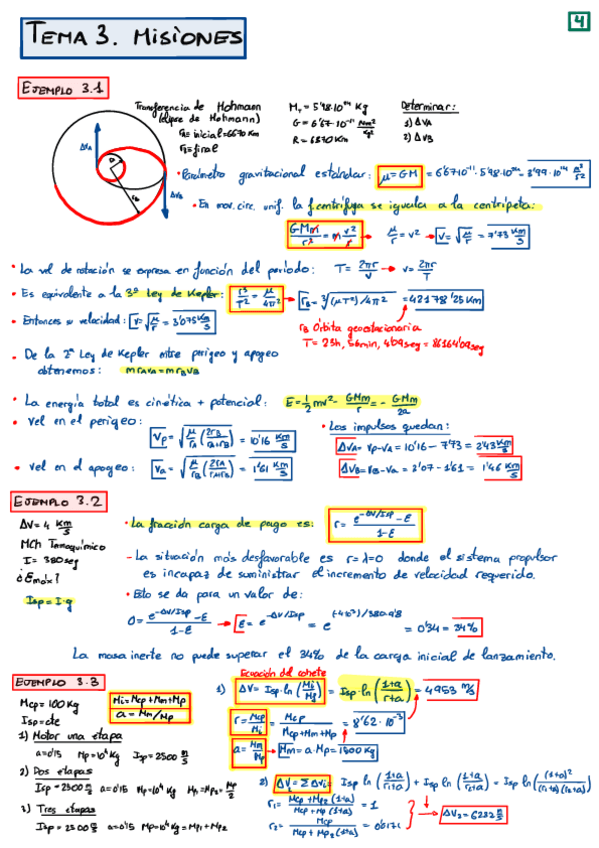 4
TEMA 3. MISIONES
EJEMPLO 3.1
Transferencia de Hohmann
(elipse de Hohmann)
rA = inicial = 6670 Km
rB = final
M_T = 5'98·10²⁴ Kg
G = 6'67·10⁻¹¹ Nm²/Kg²
R = 6370 Km
Determinar:
1) ΔVA
2) ΔVB
ΔVA
ΔVB
• Parámetro gravitacional estándar: μ=GM = 6'67·10⁻¹¹·5'98·10²⁴ = 3'99·10¹⁴ m³/s²
• En mov. circ. unif. la f. centrífuga se iguala a la centrípeta:
GMm/r² = m v²/r → μ/r = v² → v = √(μ/r) = 7'73 Km/s
• La vel de rotación se expresa en función del período: T = 2πr/v → v = 2πr/T
• Es equivalente a la 3ª Ley de Kepler: r³/T² = μ/4π² → rB = ³√(μT²)/4π² = 42178'25 Km
• Entonces su velocidad: v = √(μ/r) = 3'075 Km/s
rB Órbita geoestacionaria
T = 23h, 56min, 4'09seg = 86164'09seg
• De la 2ª Ley de Kepler entre perigeo y apogeo
obtenemos: m rA vA = m rB vB
• La energía total es cinética + potencial: E = 1/2 mv² - GMm/r = - GMm/2a
• Vel en el perigeo: Vp = √(μ/rA (2rB/(rA+rB))) = 10'16 Km/s
• Vel en el apogeo: Va = √(μ/rB (2rA/(rA+rB))) = 1'61 Km/s
• Los impulsos quedan:
ΔVA = VP-VA = 10'16 - 7'73 = 2'43 Km/s
ΔVB = VB-VA = 2'07 - 1'61 = 1'46 Km/s
EJEMPLO 3.2
ΔV = 4 Km/s
I = 380 seg
¿Emáx?
Isp = I·g
• La fracción carga de pago es: r = (e^(-ΔV/Isp) - E)/(1-E)
- La situación más desfavorable es r=λ=0 donde el sistema propulsor
es incapaz de suministrar el incremento de velocidad requerido.
• Esto se da para un valor de:
0 = (e^(-ΔV/Isp) - E)/(1-E) → E = e^(-ΔV/Isp) = e^((-4·10³)/380·9'8) = 0'34 = 34%
La masa inerte no puede superar el 34% de la carga inicial de lanzamiento.
EJEMPLO 3.3
Mcp = 100 Kg
Isp = cte
Mi = Mcp+Mm+Mp
a = Mm/Mp
1) Motor una etapa
a=0'15 Mp=10⁴ Kg Isp = 2500 m/s
2) Dos etapas
Isp = 2500 m/s a=0'15 Mp=10⁴ Kg Mp₁=Mp₂= Mp/2
3) Tres etapas
Isp = 2500 m/s a=0'15 Mp=10⁴ Kg = Mp₁+Mp₂
Ecuación del cohete
1) ΔV = Isp·ln (Mi/Mf) = Isp·ln ((1+a)/(r+a)) = 4953 m/s
r = Mcp/Mi = Mcp/(Mcp+Mm+Mp) = 8'62·10⁻³
a = Mm/Mp → Mm = a·Mp = 1500 Kg
2) ΔVt = ΣΔVi = Isp ln ((1+a)/(r₁+a)) + Isp ln ((1+a)/(r₂+a)) = Isp ln ((1+a)²/((r₁+a)(r₂+a)))
r₂ = Mcp/(Mcp+Mp₂(1+a)) = 0'0171
ΔV₂ = 6232 m/s